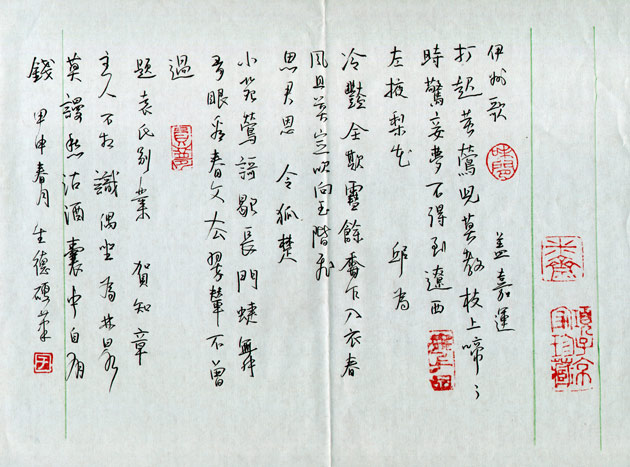 項子京家珍藏
伊州歌 蓋嘉運
打起黃鶯兒莫教枝上啼〻
時驚妾夢不得到遼西
左掖梨花 邱為
冷豔全欺雪餘香乍入衣春
風且莫定吹向玉階飛
思君恩 令狐楚
小苑鶯謌歇長門蝶舞
多眼看春又去翠輦不曾
過
題袁氏別業 賀知章
主人不相識偶坐為林泉
莫謾愁沽酒囊中自有
錢 甲申春月 生德硬筆